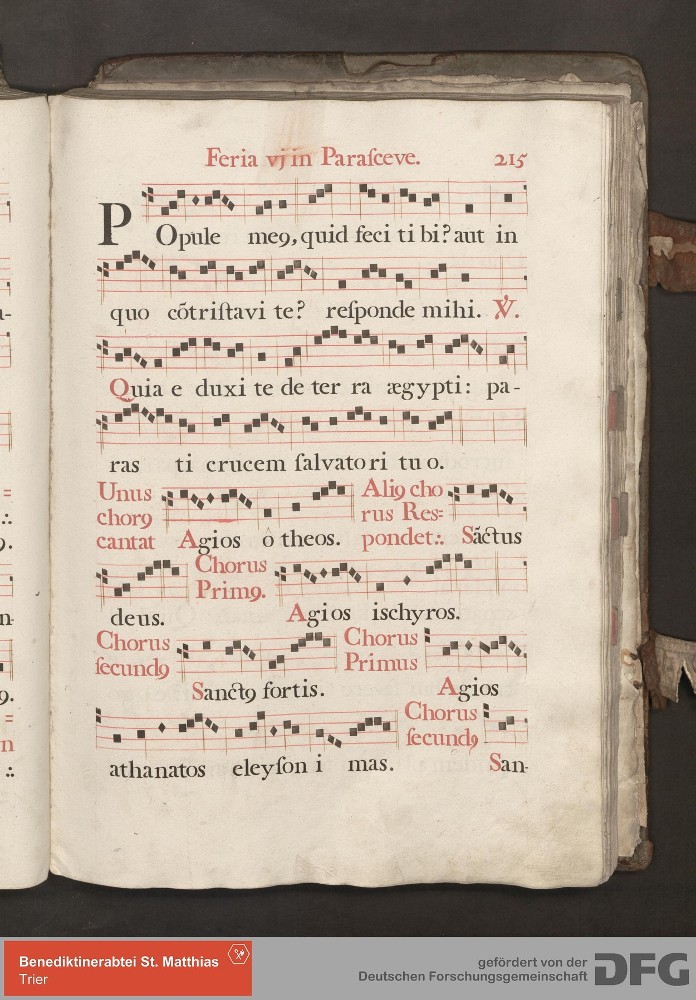 Feria vj in Paraſceve. 215
POpule meꝰ, quid feci ti bi? aut in
quo cõtriſtavi te? reſponde mihi. ℣.
Quia e duxi te de ter ra ægypti: pa-
ras ti crucem ſalvato ri tu o.
Unus chorꝰ cantat Agios ô theos. Aliꝰ cho rus Res= pondet:. Sãctus
deus. Chorus Primꝰ. Agios ischyros.
Chorus ſecundꝰ Sanctꝰ fortis. Chorus Primus Agios
athanatos eleyſon i mas. Chorus ſecundꝰ San-
a-
=
:.
ꝰ.
n-
ꝰ.
=
n
:.
Benediktinerabtei St. Matthias
Trier
gefördert von der
Deutschen Forschungsgemeinschaft
DFG